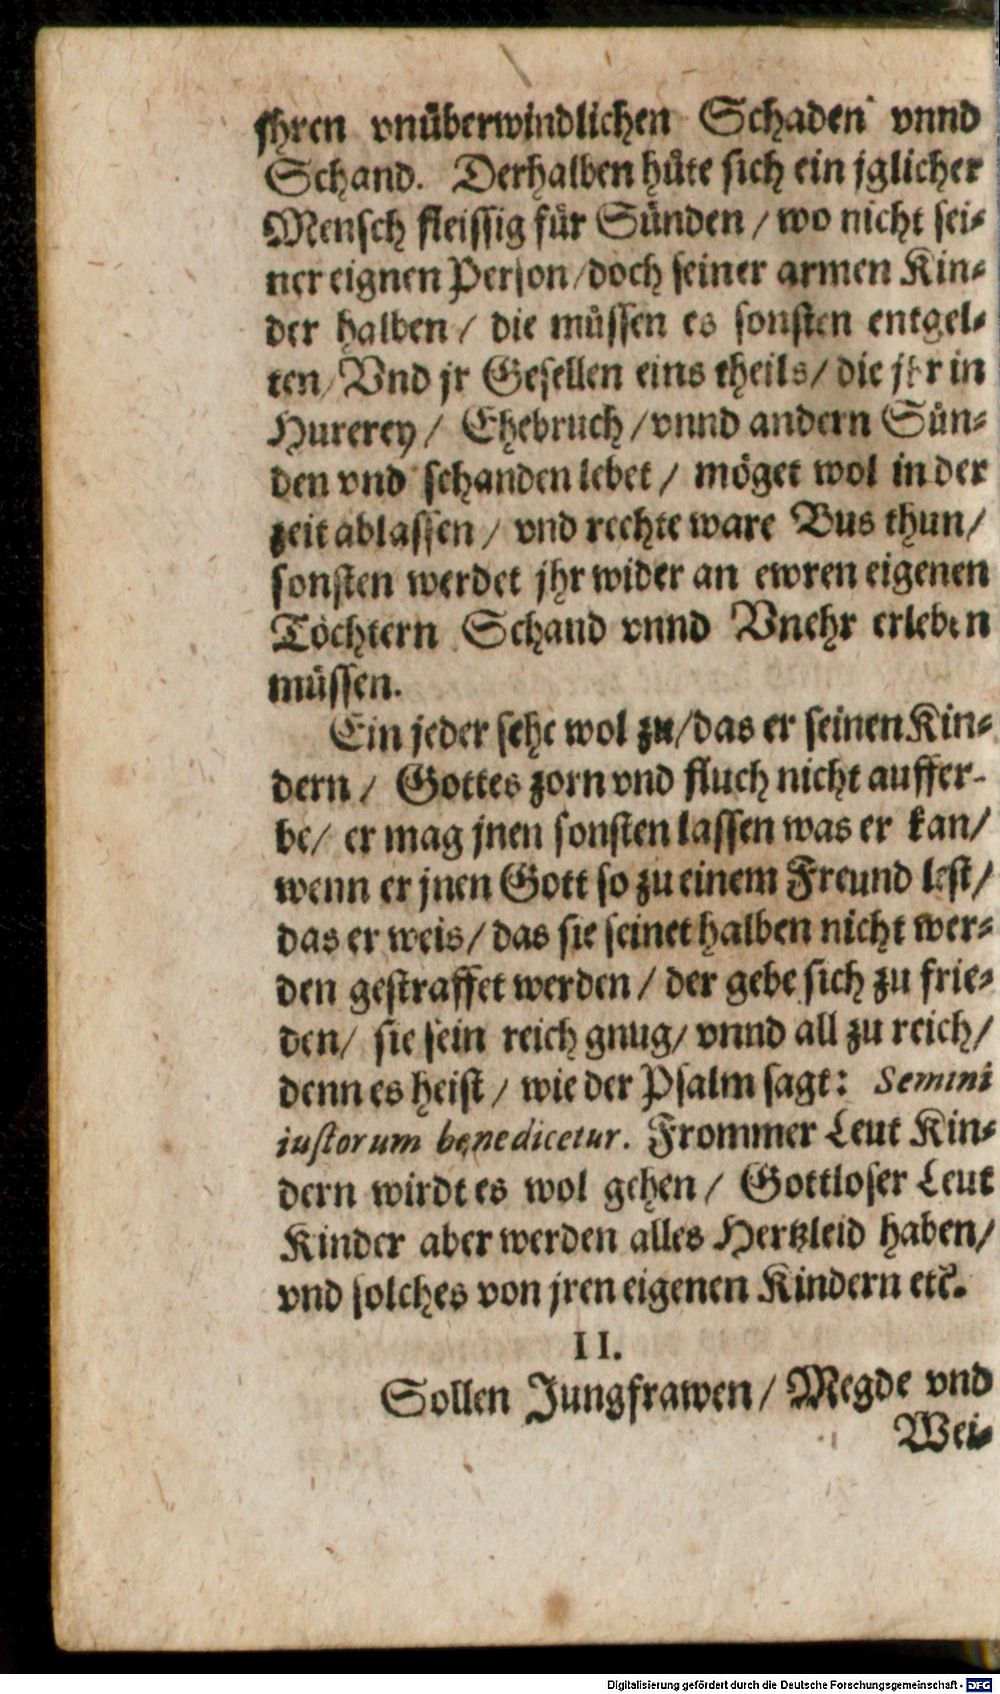 jhren vnüberwindlichen Schaden vnnd
Schand. Derhalben hüte sich ein jglicher
Mensch fleissig für Sünden / wo nicht sei-
ner eignen Person / doch seiner armen Kin-
der halben / die müssen es sonsten entgel-
ten / Vnd jr Gesellen eins theils / die jhr in
Hurerey / Ehebruch / vnnd andern Sün-
den vnd schanden lebet / möget wol in der
zeit ablassen / vnd rechte ware Bus thun /
sonsten werdet jhr wider an ewren eigenen
Töchtern Schand vnnd Vnehr erleben
müssen.
Ein jeder sehe wol zu / das er seinen Kin-
dern / Gottes zorn vnd fluch nicht auffer-
be / er mag jnen sonsten lassen was er kan /
wenn er jnen Gott so zu einem Freund lest /
das er weis / das sie seinet halben nicht wer-
den gestraffet werden / der gebe sich zu frie-
den / sie sein reich gnug / vnnd all zu reich /
denn es heist / wie der Psalm sagt: Semini
iustorum benedicetur. Frommer Leut Kin-
dern wirdt es wol gehen / Gottloser Leut
Kinder aber werden alles Hertzleid haben /
vnd solches von jren eigenen Kindern etc.
II.
Sollen Jungfrawen / Megde vnd
Wei-
Digitalisierung gefördert durch die Deutsche Forschungsgemeinschaft - DFG